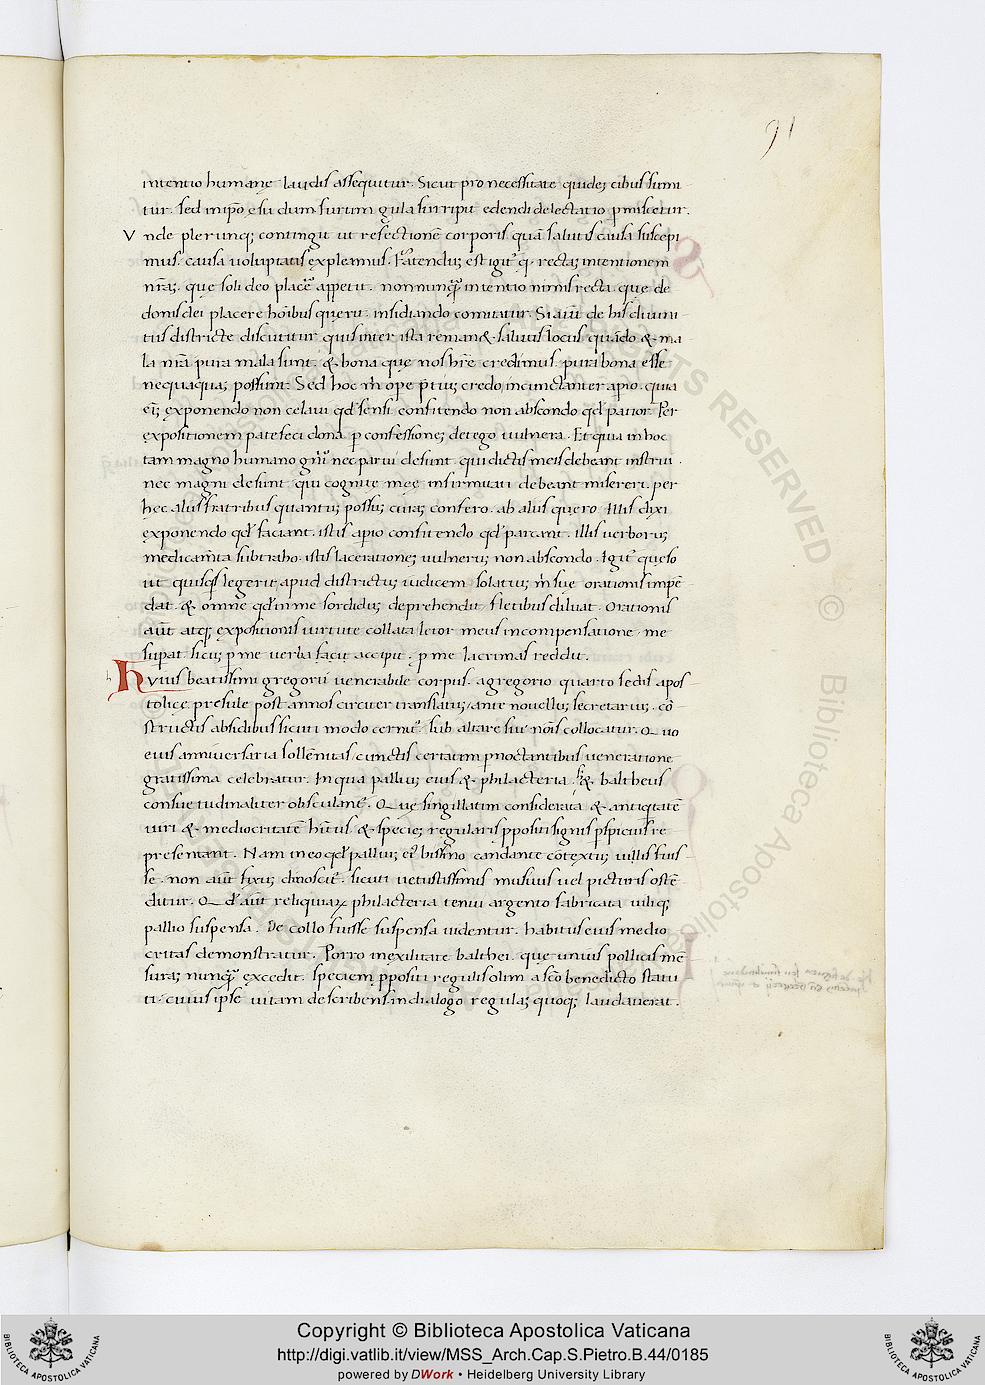 91
intentio humanę laudis assequitur. Sicut pro necessitate quidē cibus sumi-
tur. sed in ip̄o esu dum furtim gula surripit edendi delectatio p̄miscetur.
Vnde plerunq; contingit ut refectionē corporis quā salutis causa suscepi
mus. causa uoluptatis expleamus. Fatendū est igit᷑ q. rectā intentionem
nr̄ā. que soli deo placē appetit. nonnunquā intentio minus recta que de
donis dei placere hōibus querit. insidiando comitatur. Si aūt de his diuini-
tus districte discutitur quis inter ista remanet salutis locus quādo & ma
la nr̄a pura mala sunt. & bona que nos hr̄e credimus. pura bona esse
nequaquā possunt. Sed hoc m̄ ope p̄tiū credo, incunctanter apio. quia
exponendo non celaui qd̄ sensi. confitendo non abscondo qd̄ patior. Per
expositionem patefeci dona. p confessionē detego uulnera. Et quia in hoc
tam magno humano gn̄e nec parui desunt. qui dictis meis debeant instrui.
nec magni desunt qui cognite męę infirmitati debeant misereri. per
hec aliis fratribus quantū possū curā confero. ab aliis quero. Illis dixi
exponendo qd̄ faciant. istis apio confitendo qd̄ parcant. illis uerborū
medicam̄ta subtraho. istis lacerationē uulnerū non abscondo. Igit᷑ queso
ut quisq̄s legerit apud districtū iudicem solatiū m̄ sue orationis impē
dat. & omne qd̄ in me sordidū deprehendit fletibus diluat. Orationis
aūt atq; expositionis uirtute collata lector meus in compensatione me
supat. si cū p me uerba facit accipit. p me lacrimas reddit.
h Huius beatissimi gregorii uenerabile corpus. a gregorio quarto sedis apos-
tolicę presule post annos circiter translatū ante nouellū secretariū. cō-
structis absidibus sicuti modo cernit᷑. sub altare sui nōīs collocatur. Quo
eius anniuersaria sollēnitas cunctis certatim pnoctantibus ueneratione
gratissima celebratur. In qua palliū eius & philacteria. & baltheus
consuetudinaliter obsculant᷑. Quę singillatim considerata & antiquitatē
uiri & mediocritatē hītus. & speciē regularis ppositi signis pspicuis re-
presentant. Nam in eo qd̄ palliū ei᷑ bissino candente cōtextū uillis fuis-
se. non aūt fixū dinoscit᷑. sicuti uetustissimis musiuis uel picturis ostē
ditur. Qd̄ aūt reliquiaꝝ philacteria tenui argento fabricata uiliq;
pallio suspensa. de collo fuisse suspensa uidentur. habitus eius medio
critas demonstratur. Porro in exilitate balthei. que unius pollicis mē
surā nunquā excedit. speciem ppositi regulis olim a scō benedicto statu
ti. cuius ipse uitam describens in dialogo regulā quoq; laudauerat.
ALL RIGHTS RESERVED © Biblioteca Apostolica Vaticana
Copyright © Biblioteca Apostolica Vaticana
http://digi.vatlib.it/view/MSS_Arch.Cap.S.Pietro.B.44/0185
powered by DWork • Heidelberg University Library
BIBLIOTECA APOSTOLICA VATICANA
BIBLIOTECA APOSTOLICA VATICANA